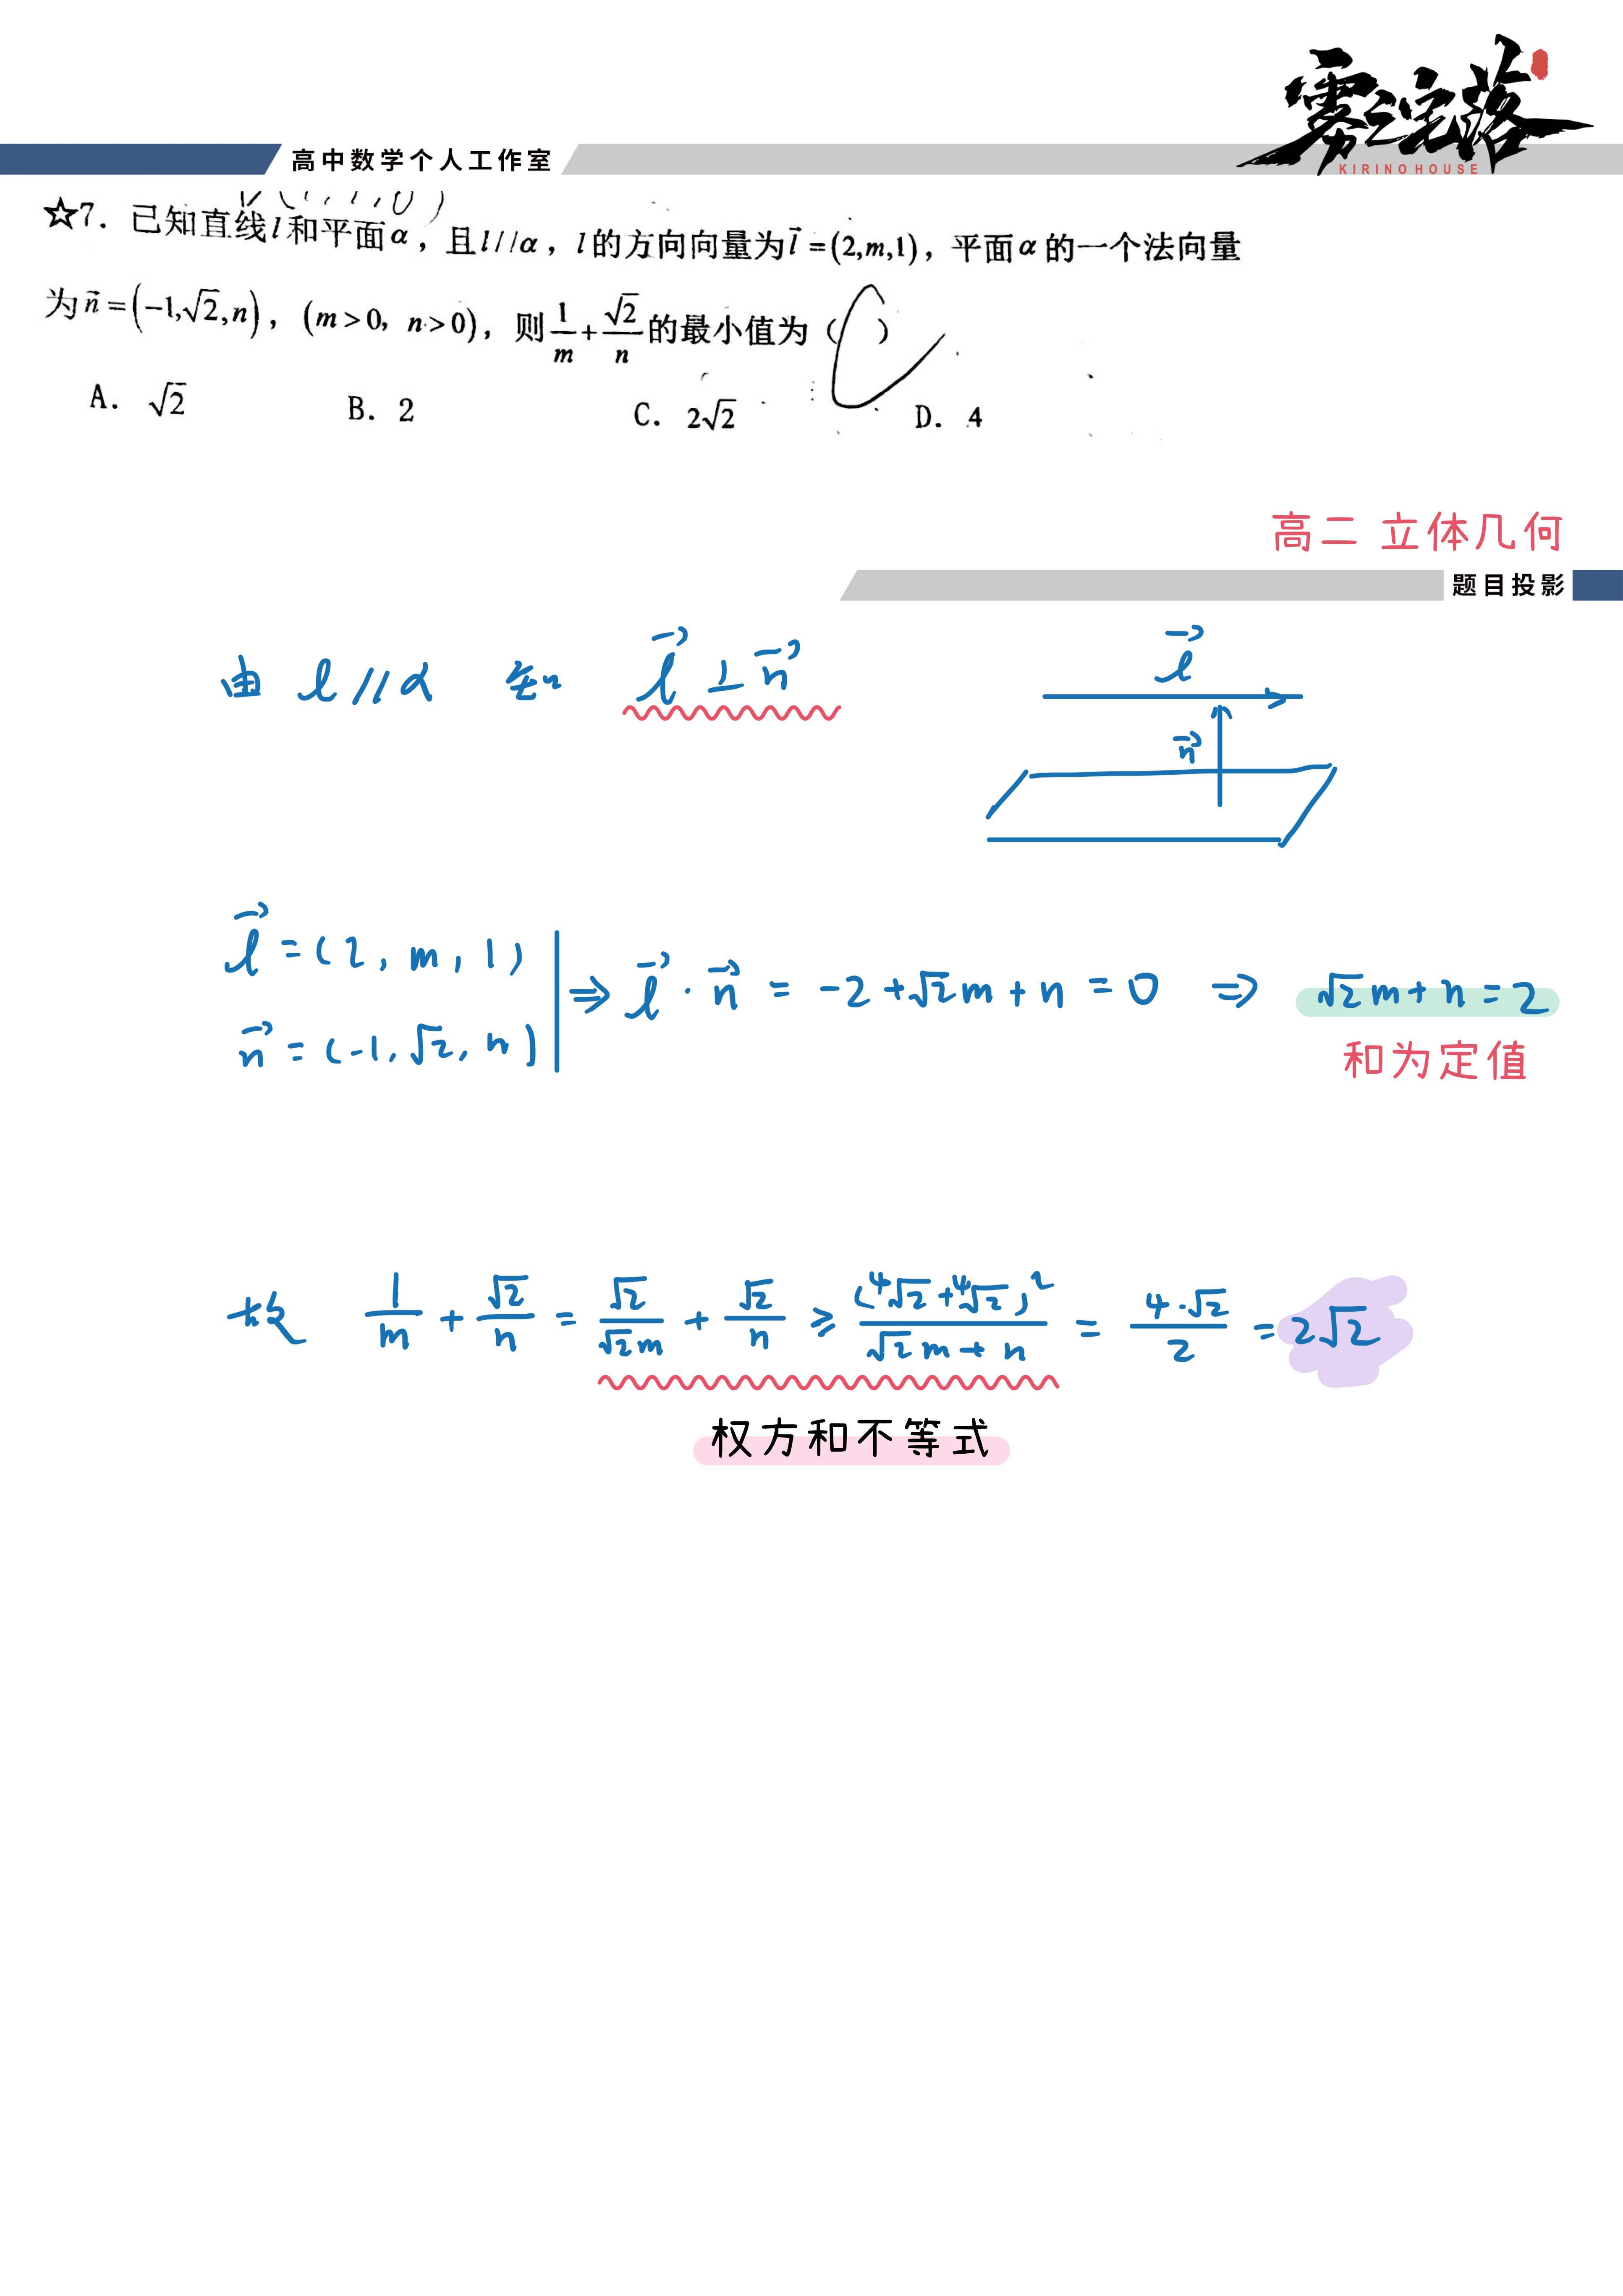 雾之宅落
KIRINO HOUSE
高中数学个人工作室
☆7. 已知直线l和平面α，且l//α，l的方向向量为l⃗=(2,m,1)，平面α的一个法向量
为n⃗=(-1,√2,n)，(m>0, n>0)，则1/m+√2/n的最小值为（ ）
C
A. √2 B. 2 C. 2√2 D. 4
高二 立体几何
题目投影
由 l // α 知 l⃗ ⊥ n⃗
l⃗
n⃗
l⃗ = (2, m, 1)
n⃗ = (-1, √2, n)
⇒ l⃗ · n⃗ = -2 + √2m + n = 0 ⇒ √2m + n = 2
和为定值
故 1/m + √2/n = √2/(√2m) + √2/n ⩾ (⁴√2 + ⁴√2)²/(√2m + n) = 4·√2/2 = 2√2
权方和不等式